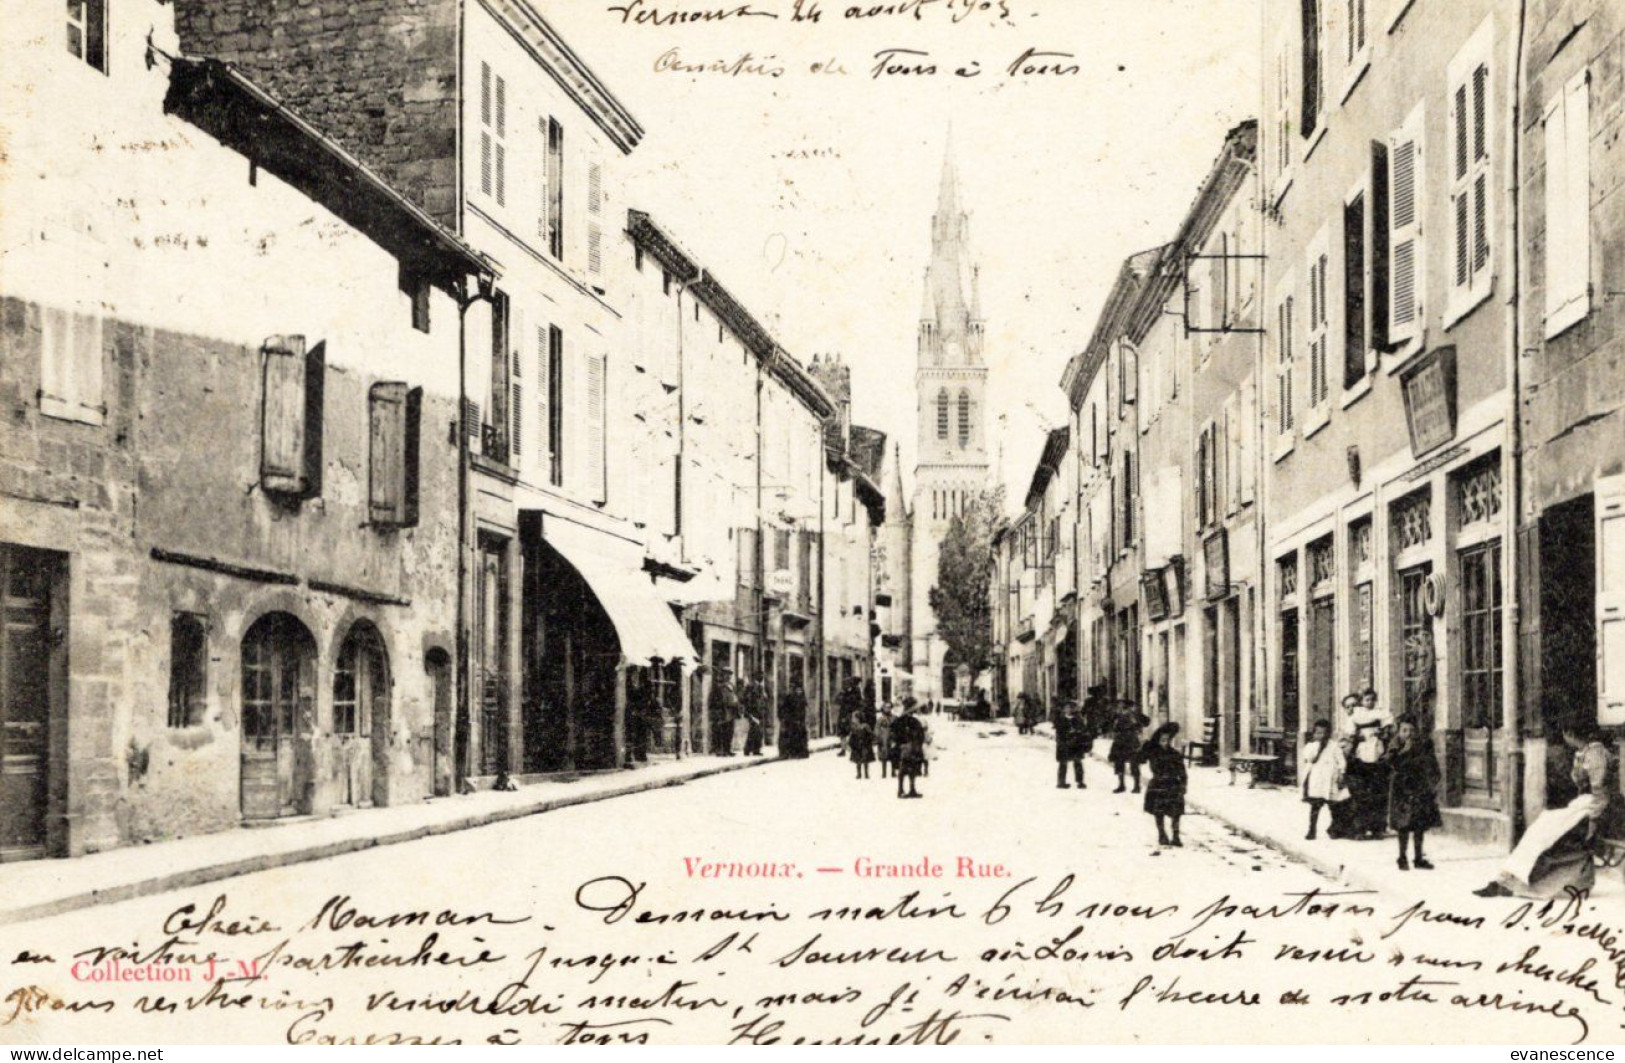 Vernoux 24 août 1903.
Amitiés de Tous à tous.
TABAC
Vernoux. — Grande Rue.
Chère Maman. Demain matin 6 h nous partons pour St Pierreville
en voiture particulière jusqu'à St Sauveur où Louis doit venir nous chercher
Nous rentrerons vendredi matin, mais je t'écrirai l'heure de notre arrivée
Collection J.-M.
Caresses à tous Henriette.
delcampe.net
evanescence